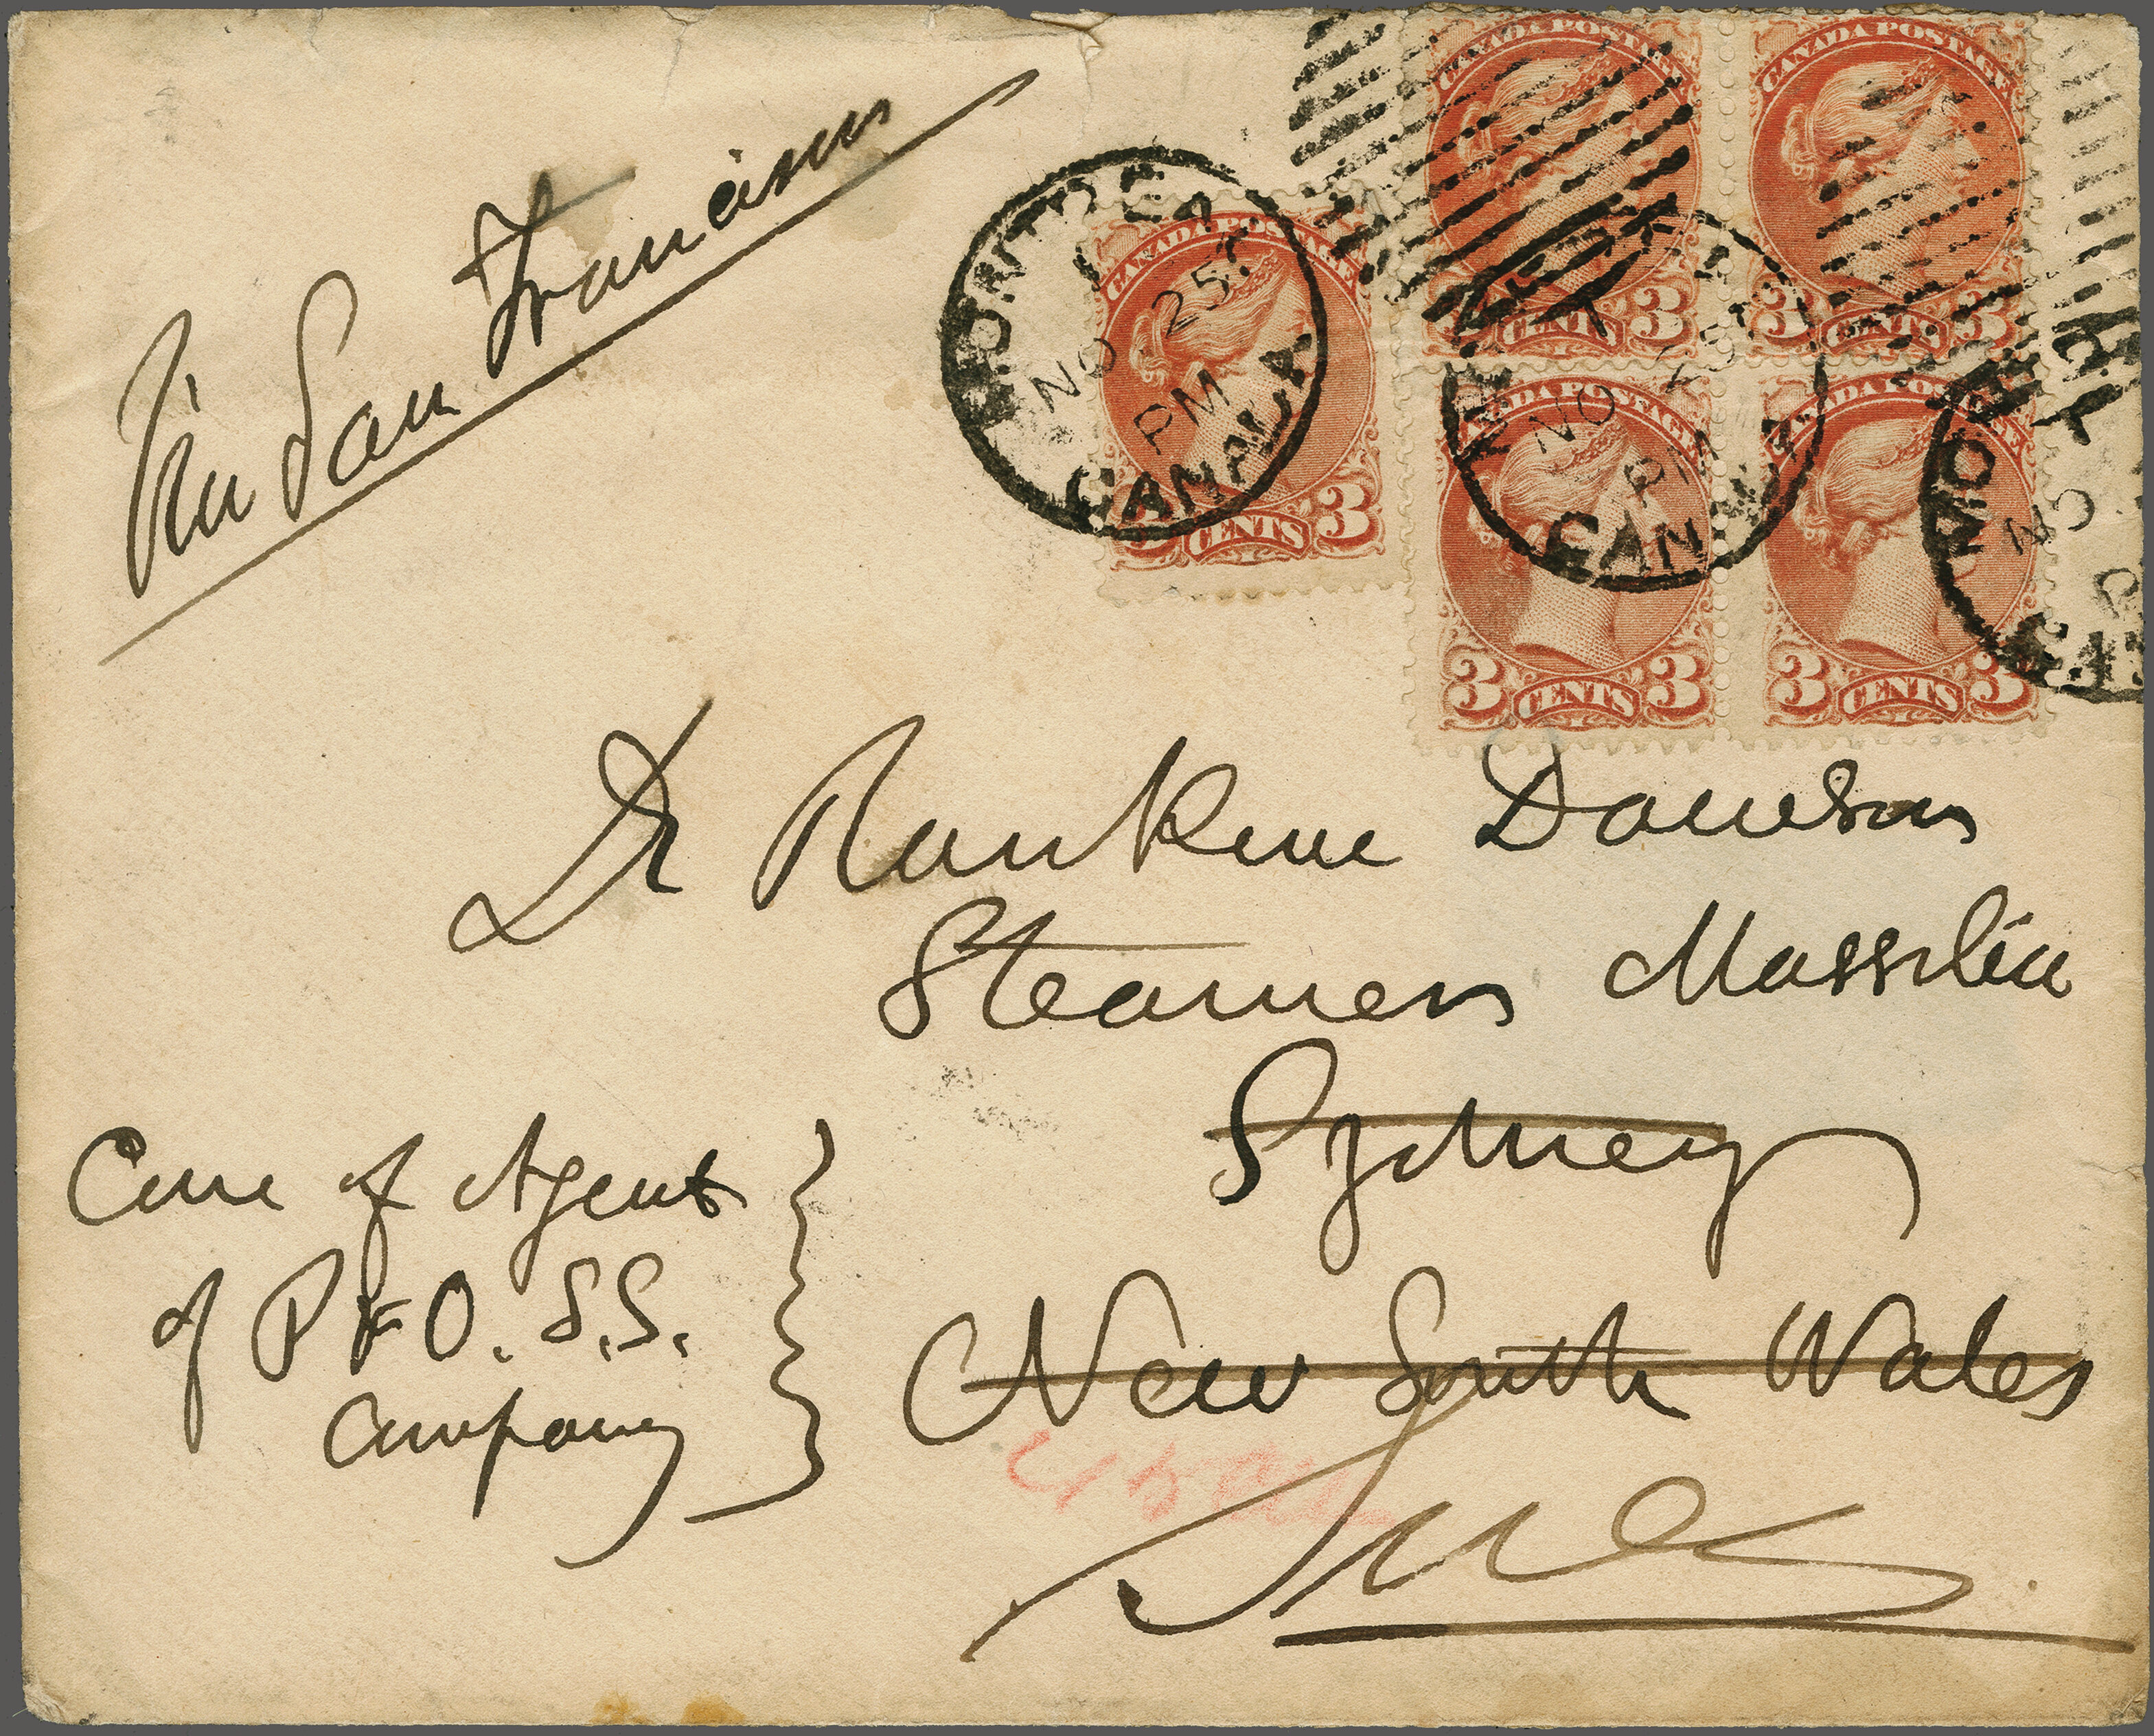 Via San Francisco
CANADA POSTAGE
3 CENTS 3
CANADA POSTAGE
3 CENTS 3
CANADA POSTAGE
CENTS 3
CANADA POSTAGE
3 CENTS 3
CANADA POSTAGE
3 CENTS 3
MONTREAL
NO 25
PM
CANADA
NO
PM
CAN
MO
NO
Dr Rankine Dawson
Steamer Massilia
Sydney
New South Wales
Care of Agent
of P & O. S.S.
Company
Suez